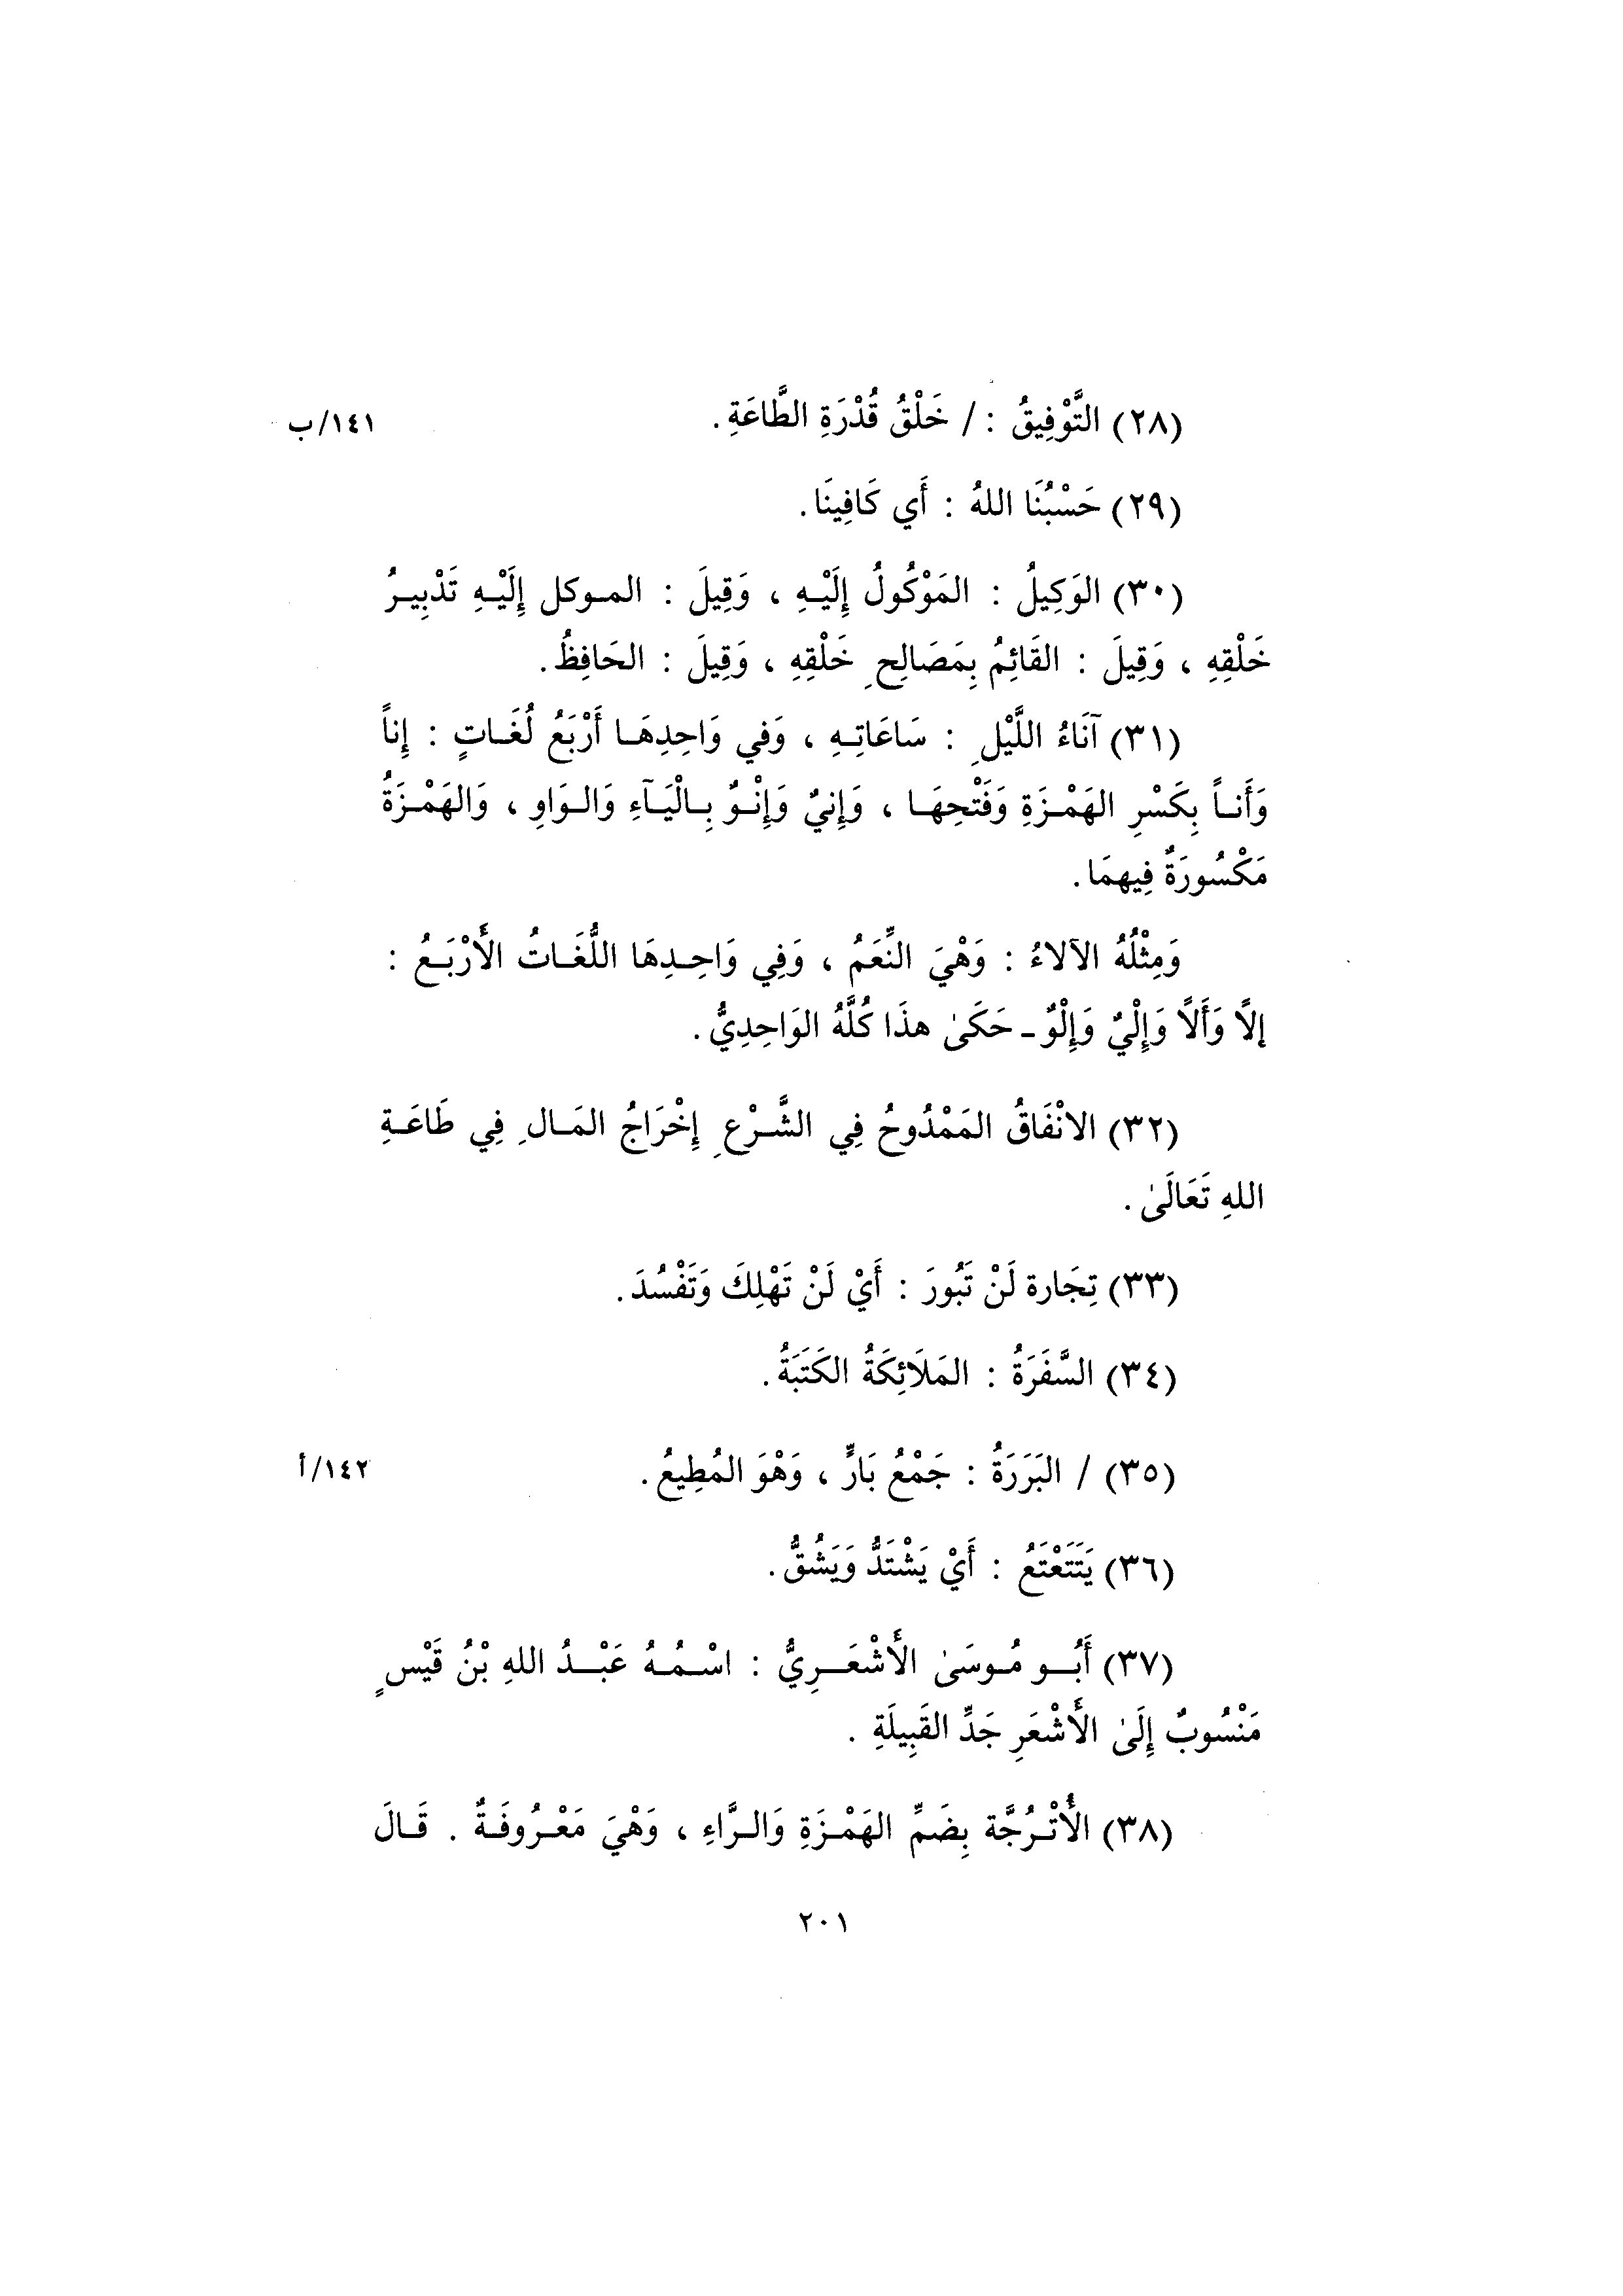 (٢٨) التَّوْفِيقُ : / خَلْقُ قُدْرَةِ الطَّاعَةِ. ١٤١/ب
(٢٩) حَسْبُنَا اللهُ : أَي كَافِينَا.
(٣٠) الوَكِيلُ : المَوْكُولُ إِلَيْهِ ، وَقِيلَ : الموكل إِلَيْهِ تَدْبِيرُ
خَلْقِهِ ، وَقِيلَ : القَائِمُ بِمَصَالِحِ خَلْقِهِ ، وَقِيلَ : الحَافِظُ.
(٣١) آنَاءُ اللَّيْلِ : سَاعَاتِهِ ، وَفي وَاحِدِهَا أَرْبَعُ لُغَاتٍ : إِناً
وَأَناً بِكَسْرِ الهَمْزَةِ وَفَتْحِهَا ، وَإِنيٌ وَإِنْوٌ بِالْيَآءِ وَالوَاوِ ، وَالهَمْزَةُ
مَكْسُورَةٌ فِيهمَا.
وَمِثْلُهُ الآلاءُ : وَهْيَ النِّعَمُ ، وَفِي وَاحِدِهَا اللُّغَاتُ الأَرْبَعُ :
إلاً وَأَلاً وَإِلْيٌ وَإِلْوٌ ـ حَكَىٰ هذَا كُلَّهُ الوَاحِدِيُّ.
(٣٢) الانْفَاقُ المَمْدُوحُ فِي الشَّرْعِ إِخْرَاجُ المَالِ فِي طَاعَةِ
اللهِ تَعَالَىٰ.
(٣٣) تِجَارة لَنْ تَبُورَ : أَيْ لَنْ تَهْلِكَ وَتَفْسُدَ.
(٣٤) السَّفَرَةُ : المَلَائِكَةُ الكَتَبَةُ.
(٣٥) / البَرَرَةُ : جَمْعُ بَارٍّ ، وَهْوَ المُطِيعُ. ١٤٢/أ
(٣٦) يَتَتَعْتَعُ : أَيْ يَشْتَدُّ وَيَشُقُّ.
(٣٧) أَبُو مُوسَىٰ الأَشْعَرِيُّ : اسْمُهُ عَبْدُ اللهِ بْنُ قَيْسٍ
مَنْسُوبٌ إِلَىٰ الأَشْعَرِ جَدِّ القَبِيلَةِ .
(٣٨) الأُتْرُجَّة بِضَمِّ الهَمْزَةِ وَالرَّاءِ ، وَهْيَ مَعْرُوفَةٌ . قَالَ
٢٠١